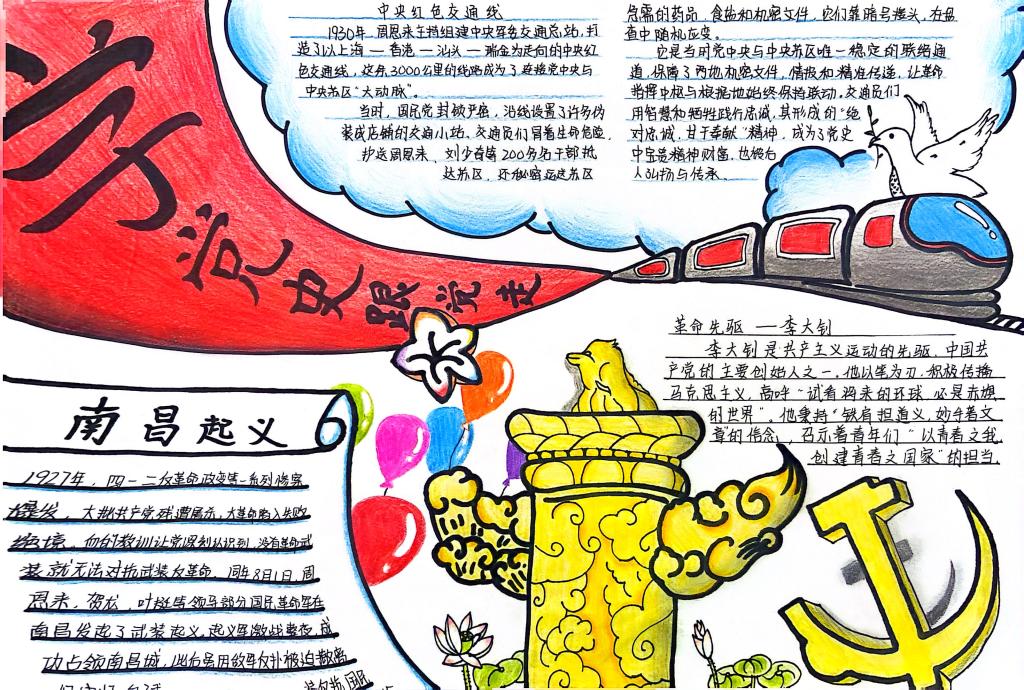 中央红色交通线
1930年，周恩来主持组建中央军委交通总站，打
造了以上海—香港—汕头—瑞金为走向的中央红
色交通线，这条3000公里的线路成为了连接党中央与
中央苏区“大动脉”。
当时，国民党封锁严密，沿线设置了许多伪
装成店铺的交通小站、交通员们冒着生命危险，
护送周恩来、刘少奇等200多名干部抵
达苏区，还秘密运送苏区
急需的药品、食盐和机密文件，它们靠暗号接头，在盘
查中随机应变。
它是当时党中央与中央苏区唯一稳定的联络通
道，保障了两地机密文件，情报和精准传递，让革命
指挥中枢与根据地始终保持联动，交通员们
用智慧和牺牲践行忠诚，其形成的“绝
对忠诚、甘于奉献”精神，成为了党史
中宝贵精神财富，也被后
人弘扬与传承。
学党史跟党走
革命先驱——李大钊
李大钊是共产主义运动的先驱，中国共
产党的主要创始人之一，他以笔为刃，积极传播
马克思主义，高呼“试看将来的环球，必是赤旗
的世界”。他秉持“铁肩担道义，妙手著文
章”的信念，召示着青年们“以青春之我，
创建青春之国家”的担当。
南昌起义
1927年，四一二反革命政变等一系列惨案
爆发，大批共产党残遭屠杀，大革命陷入失败
绝境，血的教训让党深刻认识到，没有革命武
装就无法对抗武装反革命，同年8月1日，周
恩来，贺龙，叶挺等领导部分国民革命军在
南昌发起了武装起义，起义军激战整夜，成
功占领南昌城，此后虽因敌军反扑被迫撤离